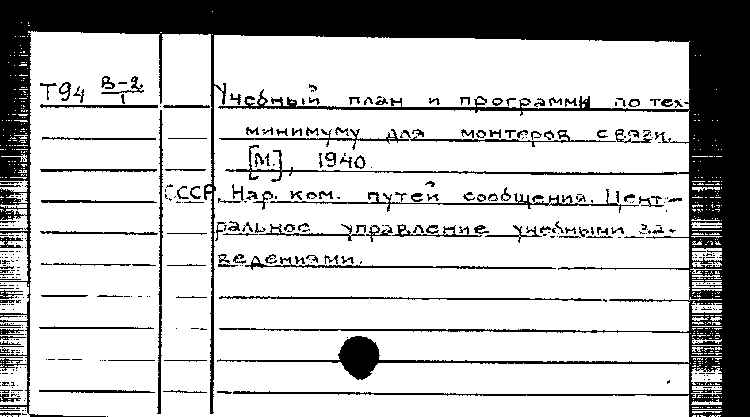 Т94 В-2/1 Учебный план и программы по тех-
минимуму для монтеров связи.
[М.], 1940.
СССР. Нар. ком. путей сообщения. Цент-
ральное управление учебными за-
ведениями.